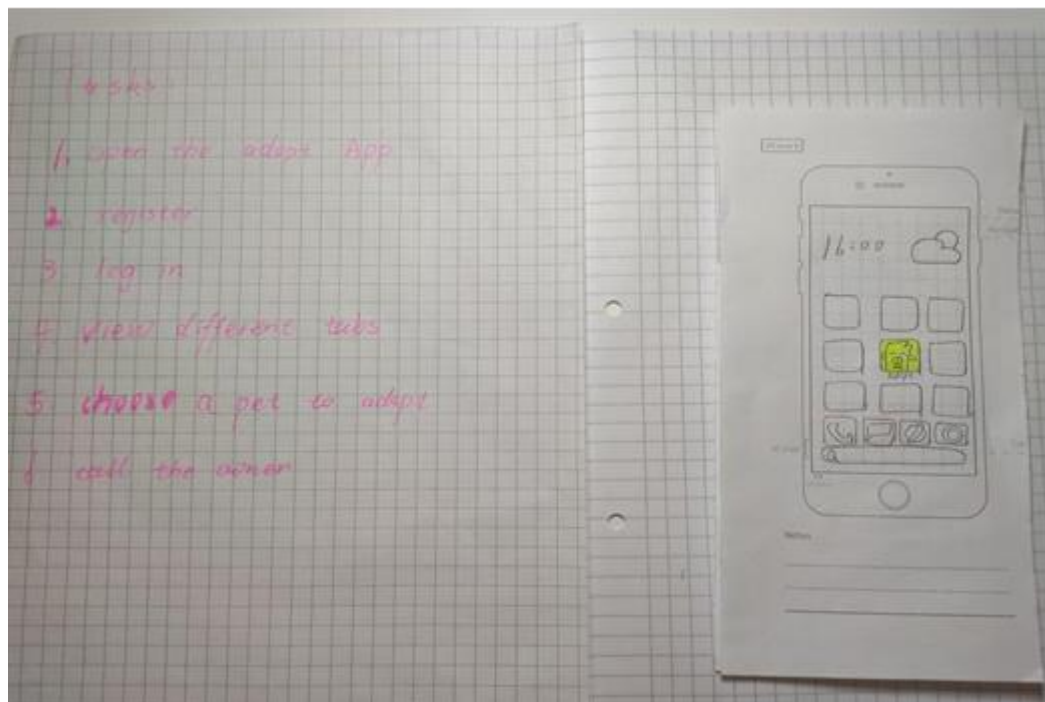 Tasks
1. open the adopt App
2 register
3 log in
4 view different tabs
5 choose a pet to adopt
6 call the owner
16:00
Notes